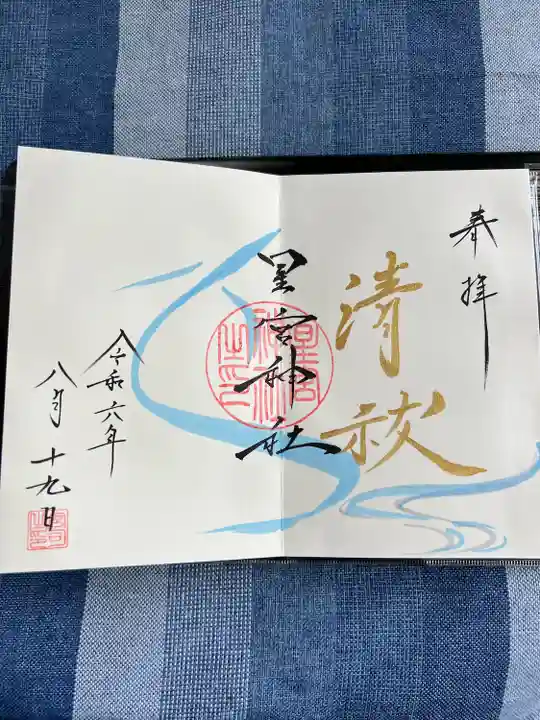 奉拝
清祓
星宮神社
令和六年
八月十九日